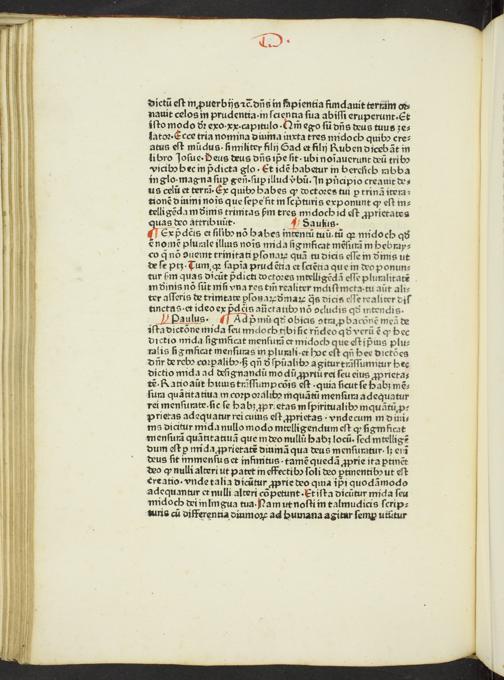 D.
dictū est in ꝓuerbijs ⁊c̄. dn̄s in sapientia fundauit terram or⸗
nauit celos in prudentia. in scientia sua abissi eruperunt. Et
isto modo dr̄ exo. xx. capitulo. Qm̄ ego sū dn̄s deus tuus ze⸗
lator. Ecce tria nomina diuina iuxta tres midoch quibꝰ cre⸗
atus est mūdus. similiter filij Gad et filij Ruben dicebāt in
libro Iosue. Deus deus dn̄s ip̄e sit. vbi noīauerunt deū tribꝰ
vicibꝰ hec in p̄dicta glo. Et idē habetur in beresich rabba
in glo. magna suꝑ gen̄. suꝑ illud v̄bū. In p̄ncipio creauit de⸗
us celū et terrā. Ex quibꝰ habes ꝙ doctores tui ꝑ trinā itera⸗
tionē diuini nois que sepe sit in scp̄turis exponunt ꝙ est in⸗
telligēda in diuinis trinitas sm̄ tres midoch id est ꝓprietates
quas deo attribuūt. Saulus.
Ex p̄dictis et silibꝰ nō habes intentū tuū. tū ꝙ midoch qd̄
ē nomē plurale illius nois mida significat mēsurā in hebray⸗
co q̄ nō ꝯuenit trinitati ꝑsonarꝝ quā tu dicis esse in diuinis ut
de se ptꝫ. Tum ꝙ sapīa prudētia et sciētia que in deo ponun⸗
tur sm̄ quas dicūt p̄dicti doctores intelligēdā esse pluralitatē
in diuinis nō sūt nisi vna res tm̄ realiter indistincta. tu aūt ali⸗
ter asseris de trinitate ꝑsonarꝝ diuinarꝝ q̄s dicis esse realiter dis
tinctas. et ideo ex p̄dictis auc̄tatibꝰ nō ꝯcludis qd̄ intendis.
Paulus. Ad p̄mū qd̄ obicis ꝯtra ꝓbacōnē meā de
ista dictōne mida seu midoch tibi sic rn̄deo qd̄ verū ē ꝙ hec
dictio mida significat mensurā et midoch que est ip̄ius plu⸗
ralis significat mensuras in plurali. et hoc est qn̄ hec dictōes
dn̄r de rebꝰ corꝑalibꝰ. sꝫ qn̄ d̓ sp̄ualibꝰ agitur trāssumitur hec
dictio mida ad designandū modū ꝓpriū rei seu eius ꝓprieta⸗
tē. Ratio aūt huius trāssumpcōis est. quia sicut se habꝫ mē⸗
sura quātitatiua in corꝑoralibꝰ inquātū mensura adequatur
rei mensurate. sic se habꝫ ꝓprietas in spiritualibꝰ inquātū ꝓ⸗
prietas adequatur rei cuius est ꝓprietas. vnde cum in diui⸗
nis dicitur mida nullo modo intelligendum est ꝙ significat
mensurā quātitatiuā que in deo nullū habꝫ locū. sed intelligē
dum est ꝑ mida ꝓprietatē diuinā qua deus mensuratur. lꝫ eni
deus sit immensus et infinitus. tamē quedā ꝓprie ita ꝑtinēt
deo ꝙ nulli alteri ut patet in effectibꝰ soli deo ꝑtinentibꝰ ut est
creatio. vnde talia dicūtur ꝓprie deo quia ip̄i quodāmodo
adequantur et nulli alteri cōpetunt. Et ista dicūtur mida seu
midoch dei in lingua tua. Nam ut nosti in talmudicis scrip⸗
turis cū differentia diuinorꝝ ad humana agitur semꝑ utūtur